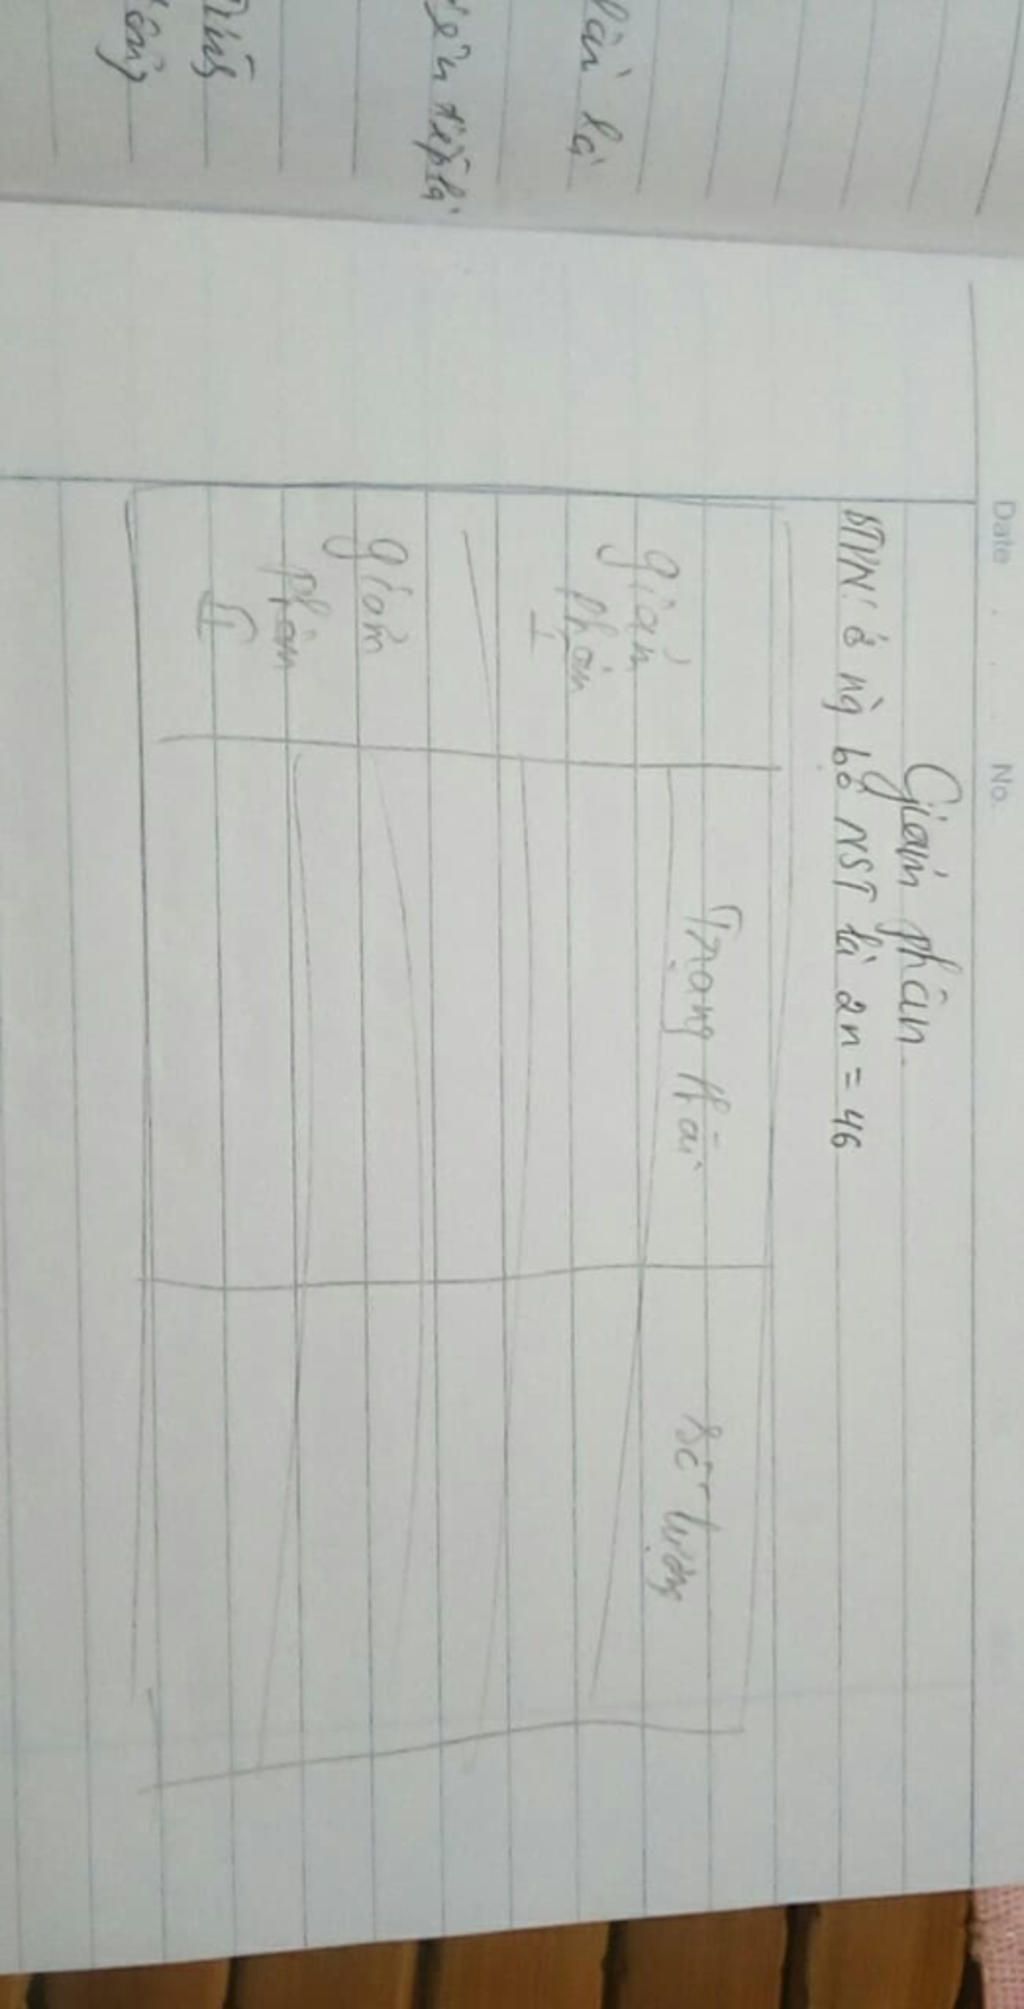 Date
No.
Giảm phân.
BTVN: ở ng bộ NST là 2n = 46
Trạng thái
số lượng
giảm
phân
I
giảm
phân
II
là
tiếp là